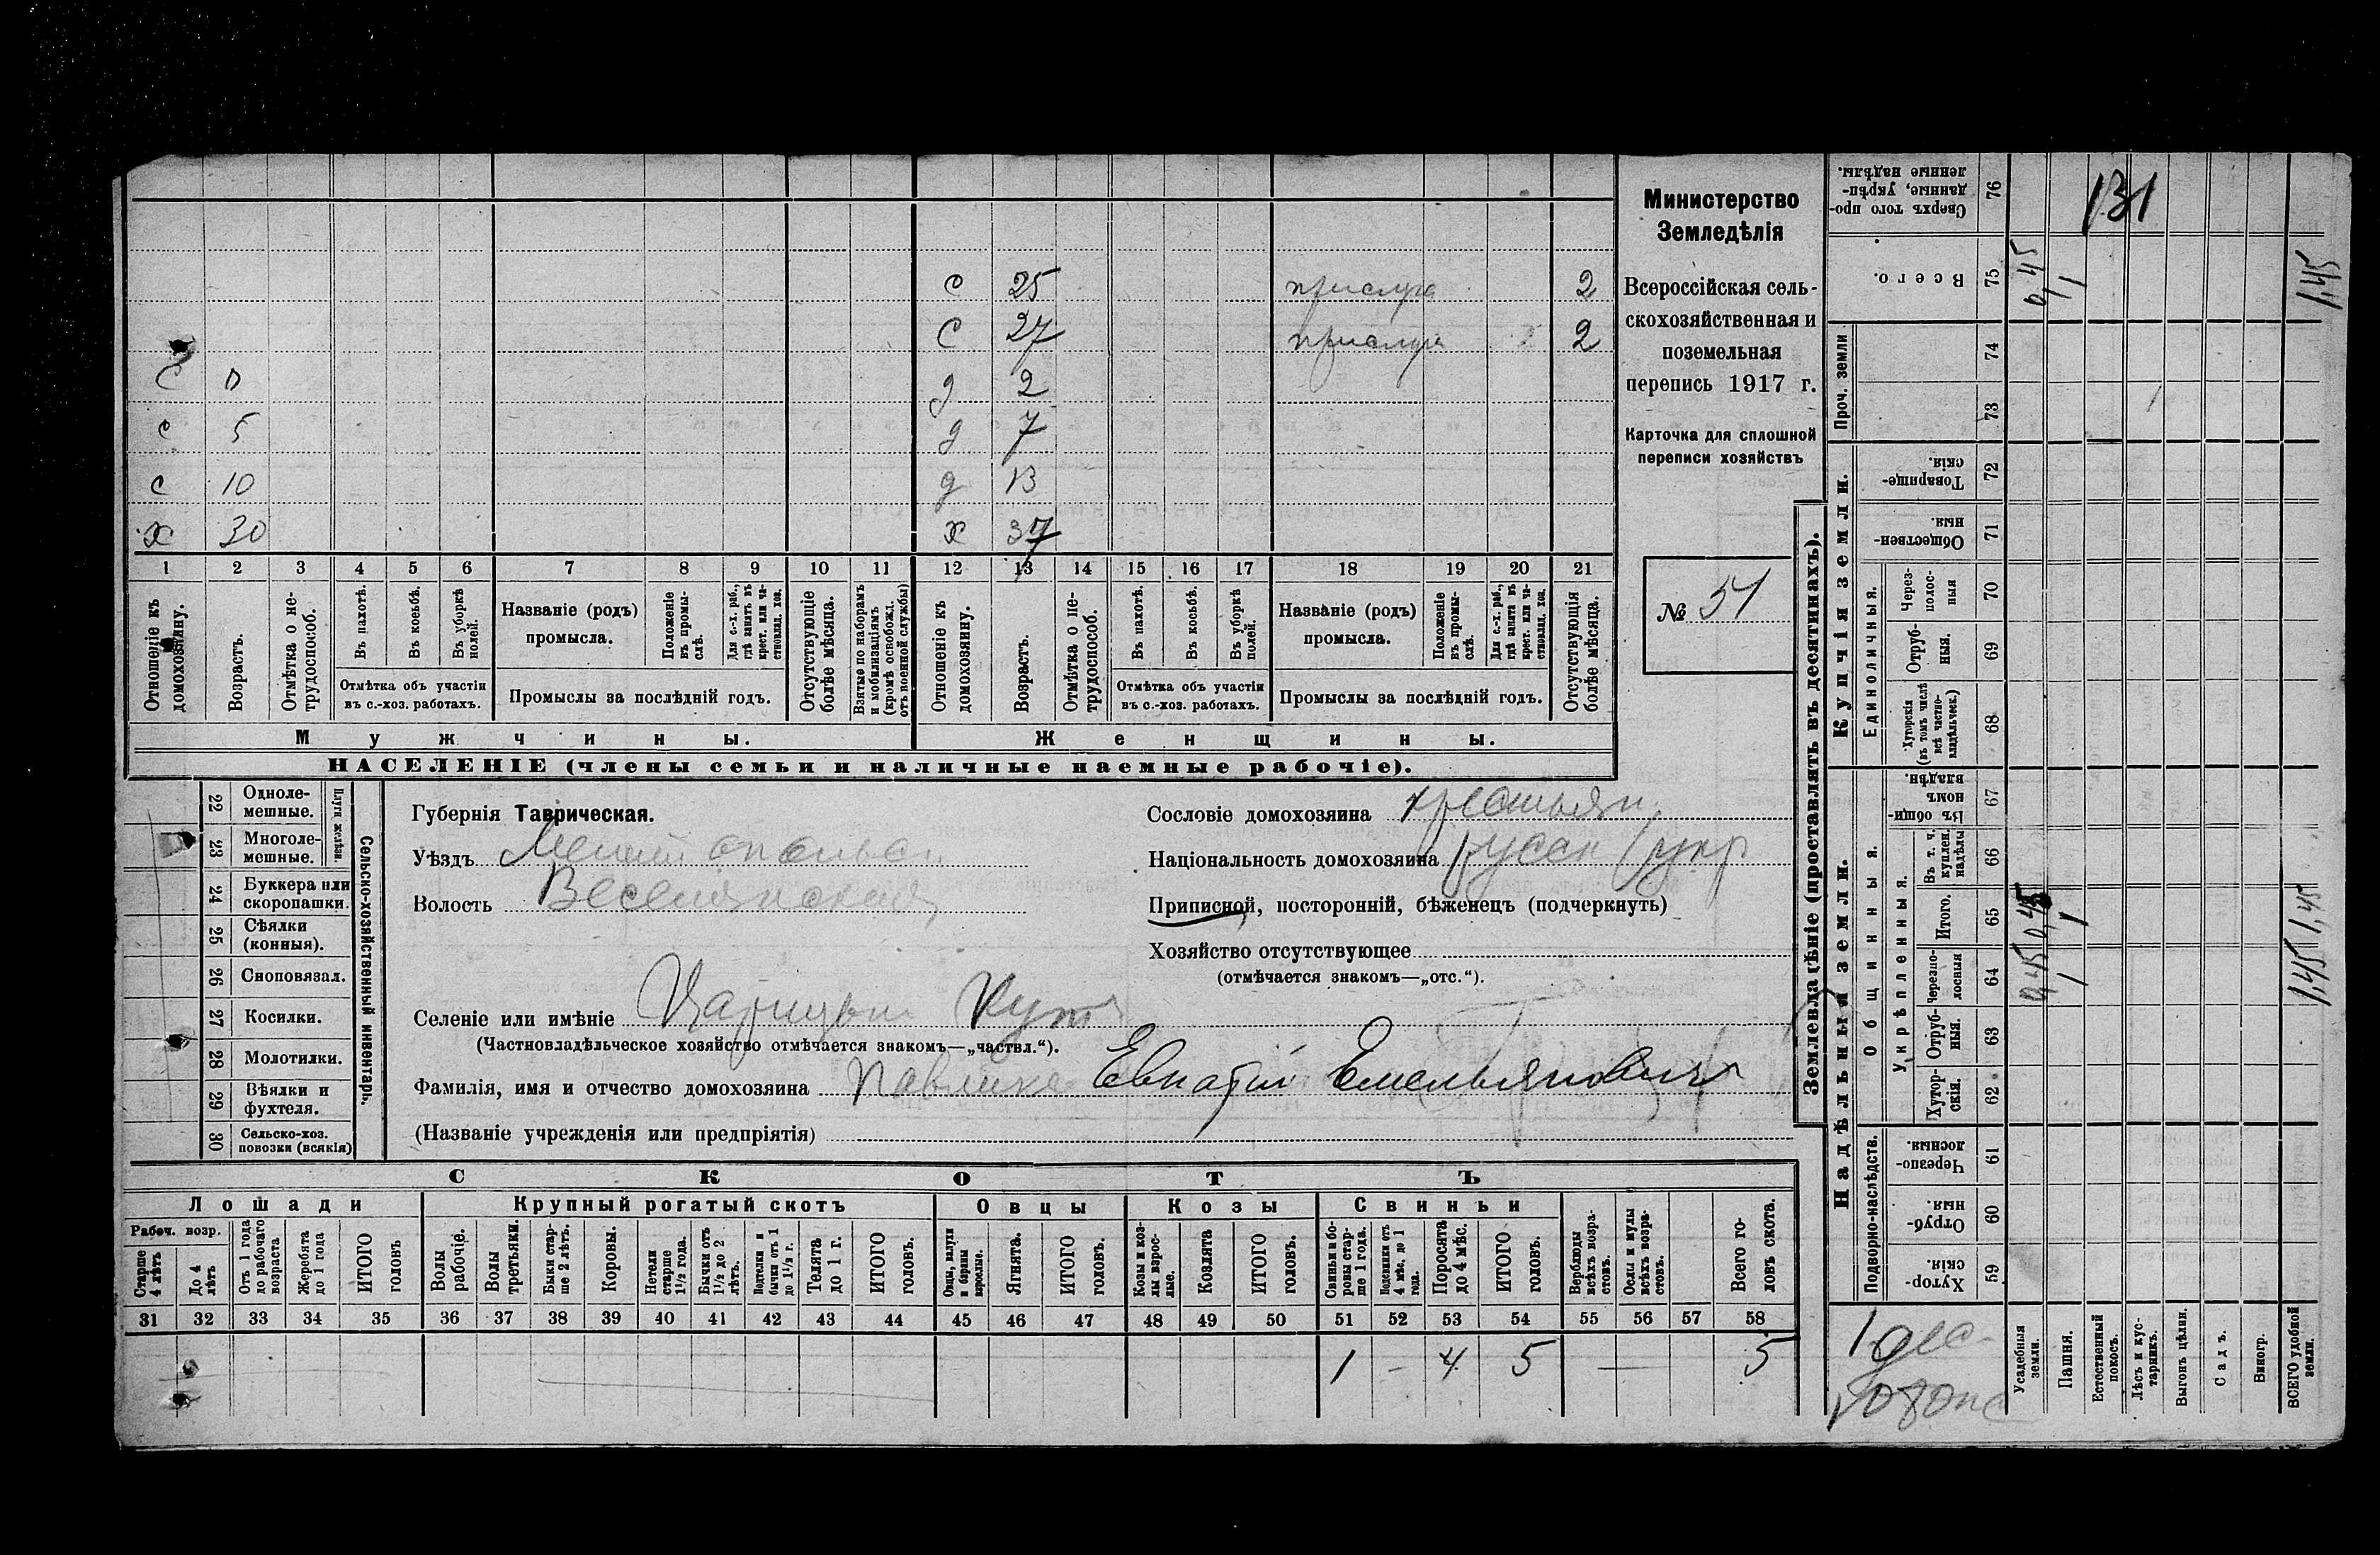 с 25 прислуга 2
с 27 прислуга 2
с 0 д 2
с 5 д 7
с 10 д 13
х 30 х 37
1 2 3 4 5 6 7 8 9 10 11 12 13 14 15 16 17 18 19 20 21
Отношеніе къ домохозяину.
Возрастъ.
Отмѣтка о не-трудоспособ.
Въ пахотѣ.
Въ косьбѣ.
Въ уборкѣ полей.
Отмѣтка объ участіи
въ с.-хоз. работахъ.
Названіе (родъ)
промысла.
Положеніе въ промы-слѣ.
Для с.-х. раб., гдѣ занятъ въ крест. или ча-стновлад. хоз.
Промыслы за послѣдній годъ.
Отсутствующіе болѣе мѣсяца.
Взятые по наборамъ и мобилизаціямъ (кромѣ освобожд. отъ военной службы)
Отношеніе къ домохозяину.
Возрастъ.
Отмѣтка о не-трудоспособ.
Въ пахотѣ.
Въ косьбѣ.
Въ уборкѣ полей.
Отмѣтка объ участіи
въ с.-хоз. работахъ.
Названіе (родъ)
промысла.
Положеніе въ промы-слѣ.
Для с.-х. раб., гдѣ занята въ крест. или ча-стновлад. хоз.
Промыслы за послѣдній годъ.
Отсутствующія болѣе мѣсяца.
Мужчины. Женщины.
НАСЕЛЕНІЕ (члены семьи и наличные наемные рабочіе).
Министерство
Земледѣлія
Всероссійская сель-
скохозяйственная и
поземельная
перепись 1917 г.
Карточка для сплошной
переписи хозяйствъ
№ 51
Сельско-хозяйственный инвентарь.
Плуги желѣзн.
22 Одноле-мешные.
23 Многоле-мешные.
24 Буккера или скоропашки.
25 Сѣялки (конныя).
26 Сноповязал.
27 Косилки.
28 Молотилки.
29 Вѣялки и фухтеля.
30 Сельско-хоз. повозки (всякія)
Губернія Таврическая.
Уѣздъ Мелитопольск
Волость Веселянская
Селеніе или имѣніе Царицын Кут
(Частновладѣльческое хозяйство отмѣчается знакомъ—„частвл.“).
Фамилія, имя и отчество домохозяина Павлике Евпатій Емельянович
(Названіе учрежденія или предпріятія)
Сословіе домохозяина крестьян.
Національность домохозяина русск (укр
Приписной, посторонній, бѣженецъ (подчеркнуть)
Хозяйство отсутствующее
(отмѣчается знакомъ—„отс.“).
СКОТЪ
Лошади Крупный рогатый скотъ Овцы Козы Свиньи
Рабоч. возр.
Старше 4 лѣтъ
До 4 лѣтъ
Отъ 1 года до рабочаго возраста
Жеребята до 1 года
ИТОГО головъ
Волы рабочіе.
Волы третьяки.
Быки стар-ше 2 лѣтъ.
Коровы.
Нетели старше 1½ года.
Бычки отъ 1½ до 2 лѣтъ.
Подтелки и бычки отъ 1 до 1½ г.
Телята до 1 г.
ИТОГО головъ.
Овцы, валухи и бараны взрослые.
Ягнята.
ИТОГО головъ.
Козы и коз-лы взрос-лые.
Козлята
ИТОГО головъ.
Свиньи и бо-ровы стар-ше 1 года.
Подсвинки отъ 4 мѣс. до 1 года.
Поросята до 4 мѣс.
ИТОГО головъ.
Верблюды всѣхъ возра-стовъ.
Ослы и мулы всѣхъ возра-стовъ.
Всего го-ловъ скота.
31 32 33 34 35 36 37 38 39 40 41 42 43 44 45 46 47 48 49 50 51 52 53 54 55 56 57 58
1 – 4 5 — 5
Землевладѣніе (проставлять въ десятинахъ).
Надѣльныя земли.
Купчія земли.
Проч. земли
Подворно-наслѣдств.
Общинныя.
Укрѣпленныя.
Единоличныя.
Хутор-скія. 59
Отруб-ныя. 60
Черезпо-лосныя. 61
Хутор-скія. 62
Отруб-ныя. 63
Черезпо-лосныя 64
Итого. 65
Въ т. ч. куплен. надѣлы 66
Въ общин-номъ владѣн. 67
Хуторскія (въ томъ числѣ всѣ частно-владѣльческ.) 68
Отруб-ныя. 69
Через-полос-ныя 70
Обществен-ныя. 71
Товарище-скія. 72
73
74
Всего. 75
Сверхъ того про-данные, укрѣп-ленные надѣлы. 76
Усадебныя земли. 0,45 0,45 0,45
Пашня. 1 1 1
Естественный покосъ.
Лѣсъ и кус-тарникъ.
Выгонъ цѣлин.
Садъ.
Виногр.
ВСЕГО удобной земли. 1,45 1,45 1,45
131
1 дес.